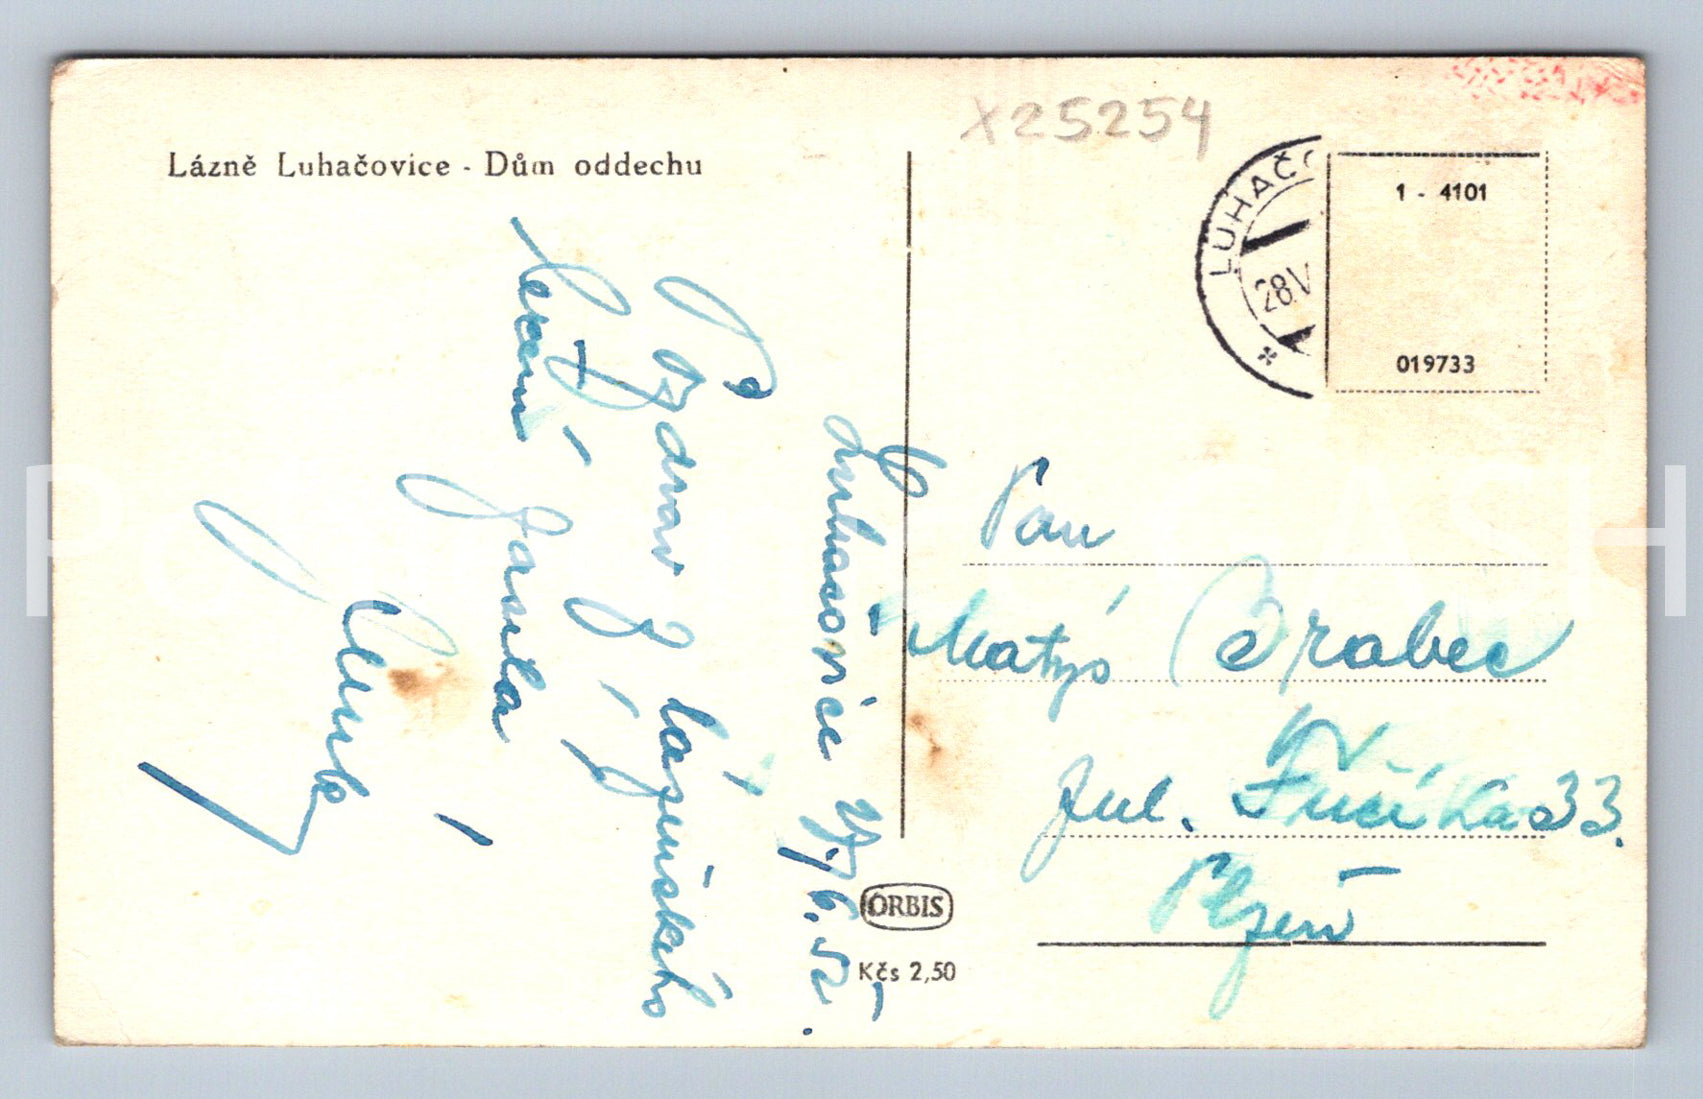 Lázně Luhačovice - Dům oddechu
X25254
LUHAČO
28.V
1 - 4101
019733
Luhačovice 27/6.52.
Pozdrav z lázeňského
léčení
Jarula
Pan
Matys Brabec
Jul. Fučíka 33.
Plzeň
ORBIS
Kčs 2,50